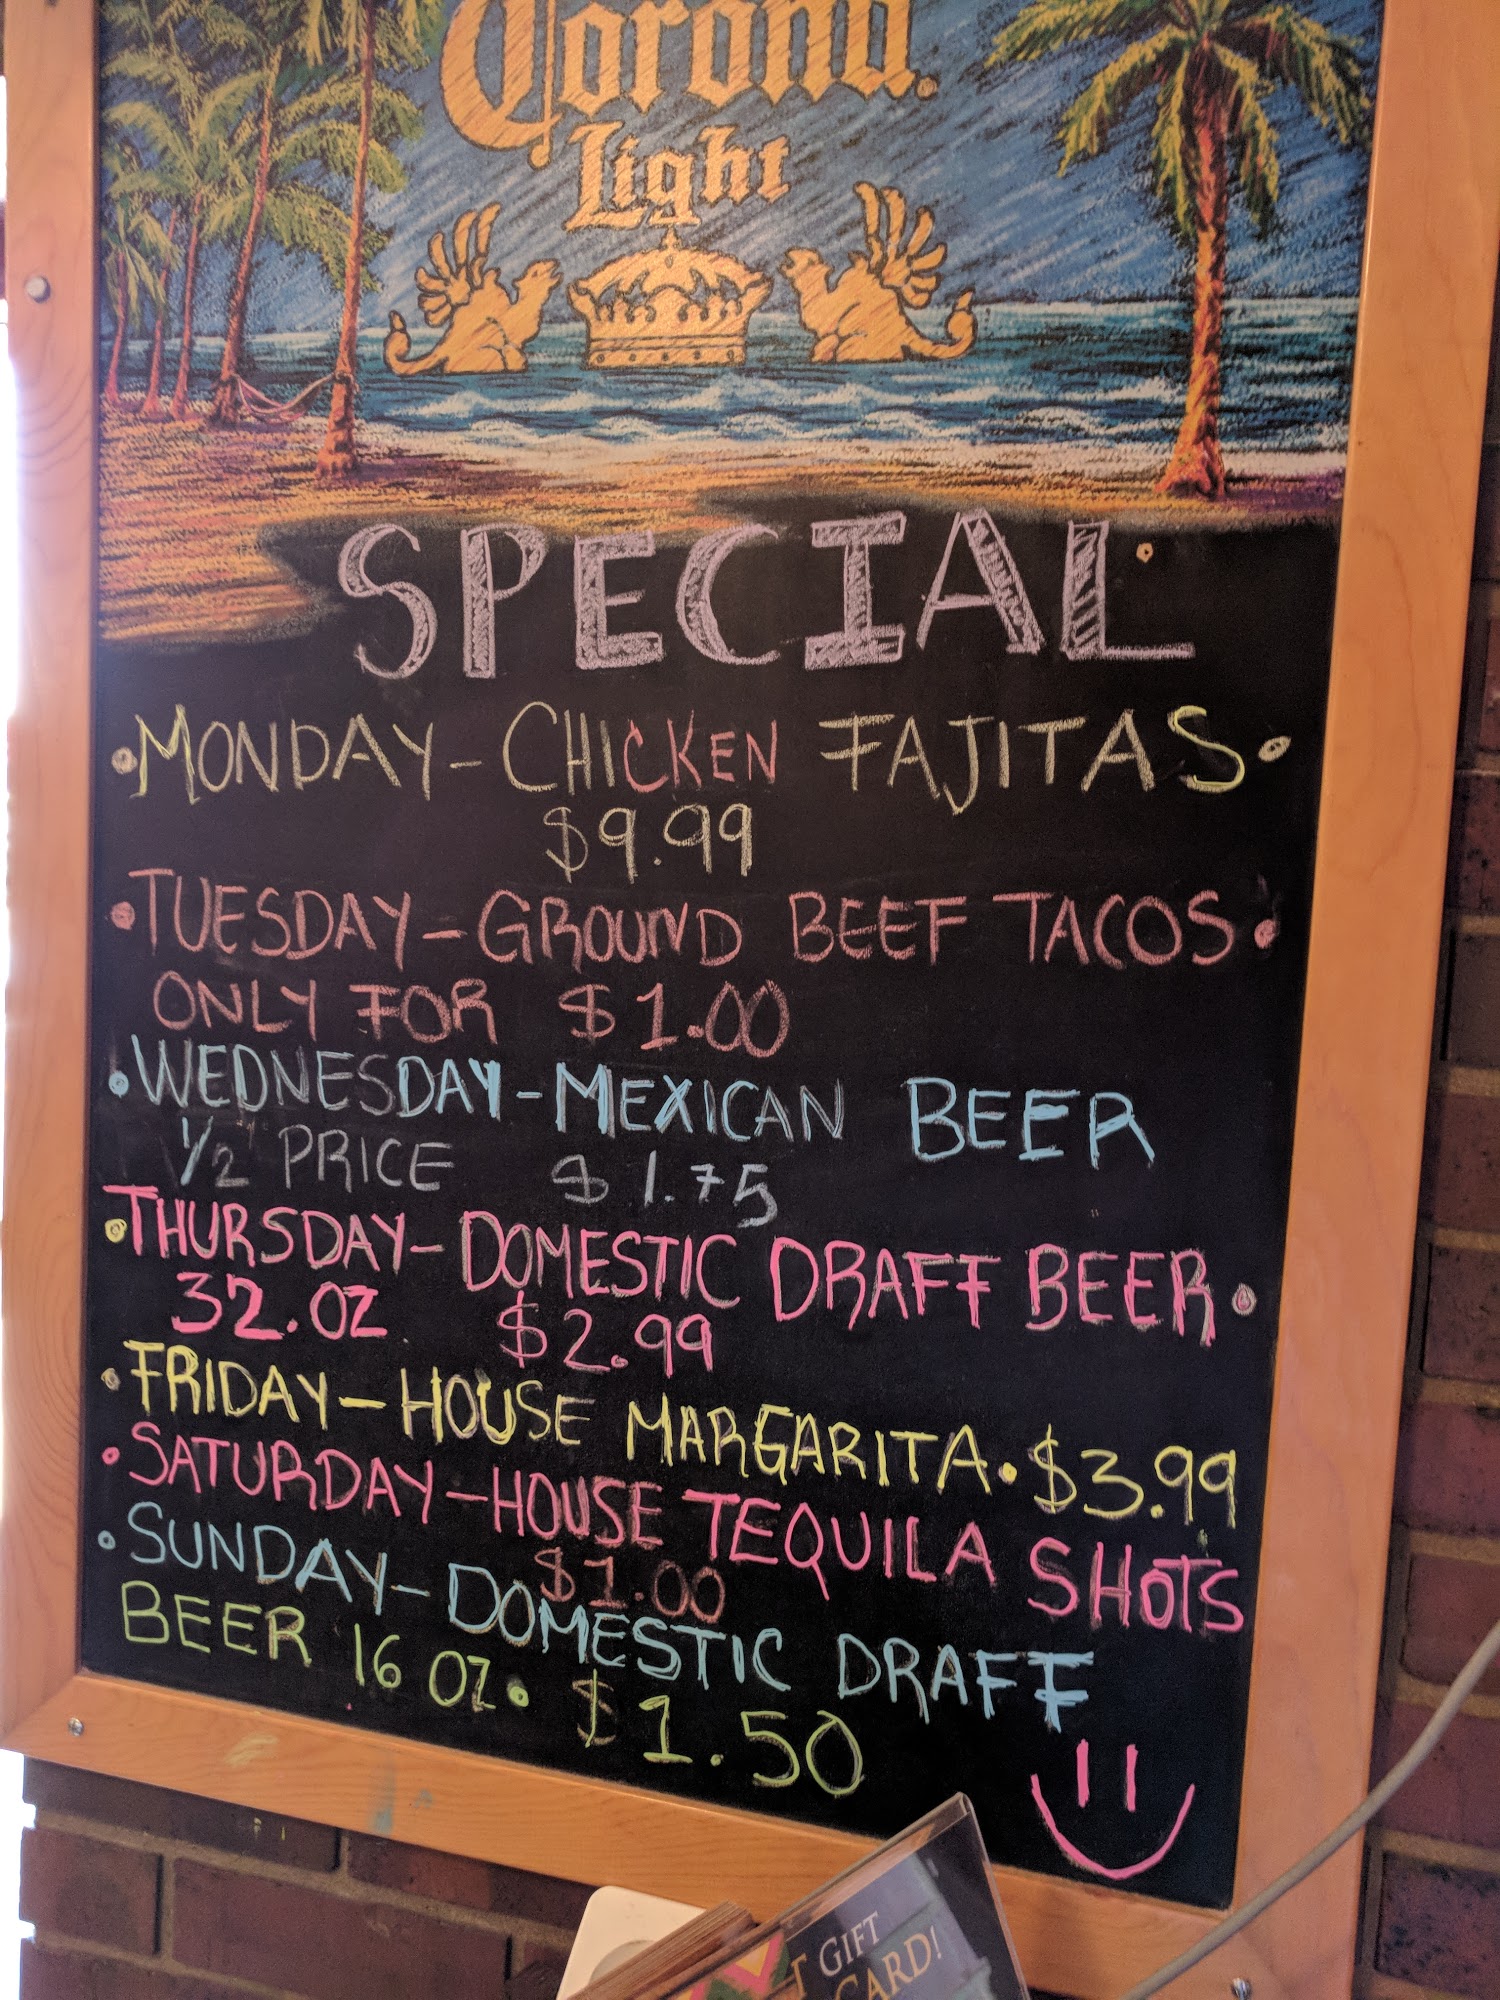 Corona
Light
SPECIAL
MONDAY - CHICKEN FAJITAS
$9.99
TUESDAY - GROUND BEEF TACOS
ONLY FOR $1.00
WEDNESDAY - MEXICAN BEER
1/2 PRICE $1.75
THURSDAY - DOMESTIC DRAFT BEER
32.OZ. $2.99
FRIDAY - HOUSE MARGARITA. $3.99
SATURDAY - HOUSE TEQUILA SHOTS
$1.00
SUNDAY - DOMESTIC DRAFT
BEER 16 OZ. $1.50
GIFT
CARD!